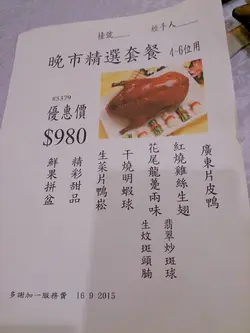 檯號____ 經手人____
晚市精選套餐 4-6位用
#3379
優惠價
$980
廣東片皮鴨
紅燒雞絲生翅
花尾龍躉兩味
翡翠炒斑球
生炆斑頭腩
干燒明蝦球
生菜片鴨崧
精彩甜品
鮮果拼盆
多謝加一服務費 16 9 2015